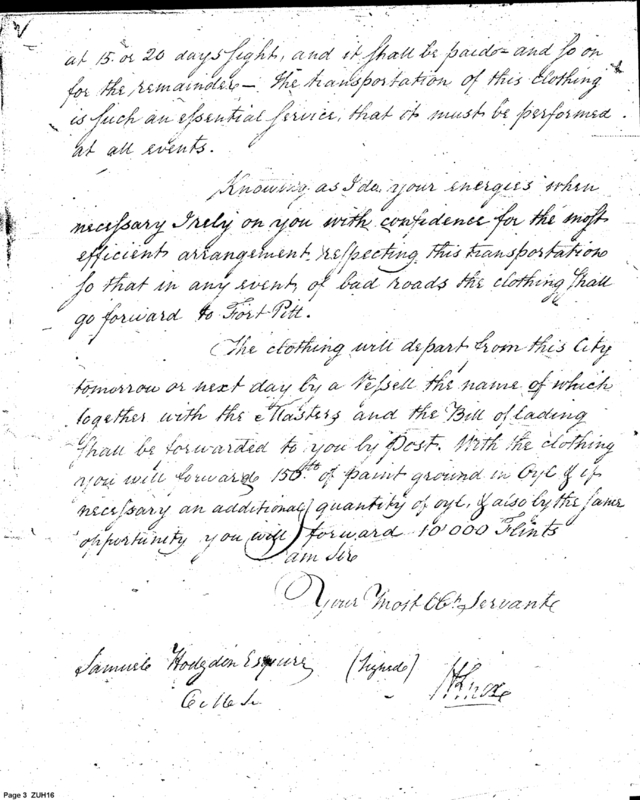 at 15 or 20 days sight, and it shall be paid = and so on
for the remainder — The transportation of this clothing
is such an essential service, that it must be performed
at all events.
Knowing as I do, your energies when
necessary I rely on you with confidence for the most
efficient arrangement respecting this transportation
so that in any event of bad roads the clothing shall
go forward to Fort Pitt.
The clothing will depart from this City
tomorrow or next day by a Vessell the name of which
together with the Masters and the Bill of lading
shall be forwarded to you by Post. With the clothing
you will forward 150 lbs of paint ground in Oyl & if
necessary an additional quantity of oyl, & also by the same
opportunity you will forward 10'000 Flints
am Sir
Your Most Obt. Servant
Samuel Hodgdon Esquire (Signed) HKnox
Page 3 ZUH16